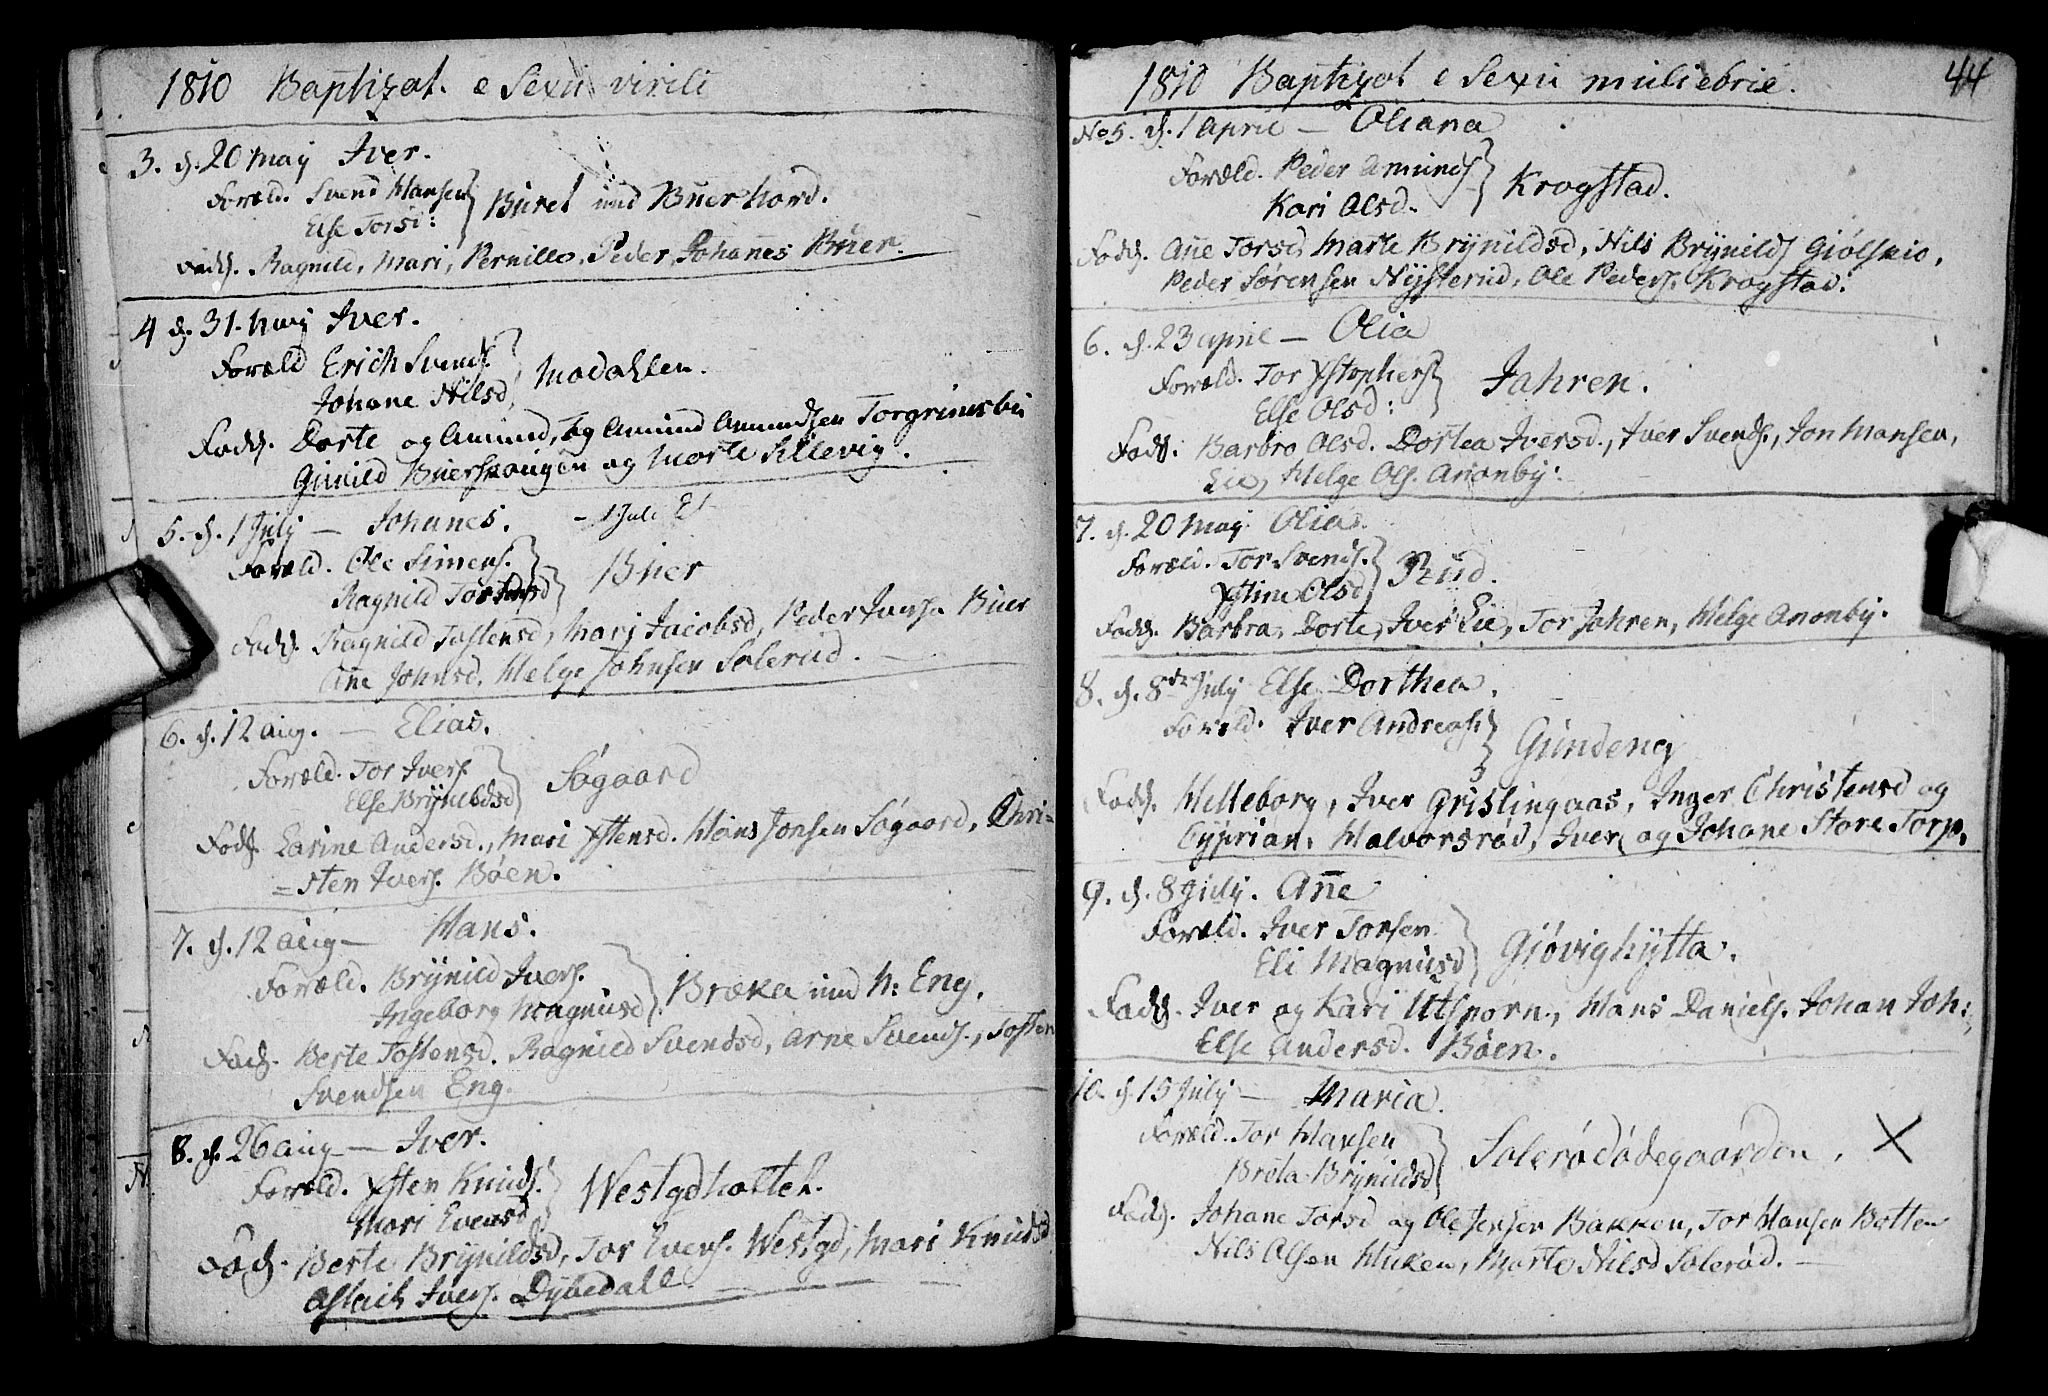 1810 Baptizat. e Sexu virili
3. d. 20 May Iver.
Foræld. Svend Hansen
Else Torsd:
Buret und Buer hord.
Fadd. Ragnild, Mari, Pernille, Peder, Johañes Buer.
4 d. 31. May Iver.
Foræld Erich Svends.
Johane Nilsd
Modahlen.
Fadd. Dorte og Amund, og Amund Amundsen Torgrimsbü
Gunild Buerskougen og Marte Sillevig.
5. d. 1 July — Johanes. – 1 Juli
Foræld. Ole Simens.
Ragnild Tostensd
Buer
Fadd. Ragnild Tostensd, Mari Jacobsd, Peder Ivers. Buer
Añe Johnsd. Helge Johnsen Solerud. —
6. d. 12 aug. — Elias.
Foræld. Tor Ivers.
Else Brynildsd
Søgaard
Fadd. Larine Andersd., Mari Xstensd. Hans Jonsen Søgaard, Chri=
=sten Ivers. Böen.
7. d. 12 aug — Hans.
Foræld. Brynild Ivers.
Ingeborg Magnusd
Bræka und N: Eng.
Fadd. Berte Tostensd. Ragnild Svendsd, Arne Svends., Tosten
Svendsen Eng.
8. d. 26 aug — Iver.
Foræld. Xsten Knuds.
Mari Evensd
Westgdholtet.
Fadd. Berte Brynildsd, Tor Evers. Westgd, Mari Knudsd
Aslach Ivers. Dybedahl.
1810 Baptizat e Sexu muliebrie. 44
No 5. d. 1 April — Oliana
Foræld. Peder Amunds
Kari Olsd.
Krogstad.
Fadd. Añe Torsd, Marte Brynildsd, Nils Brynilds Giølsrio,
Peder Sørensen Nysterud, Ole Peders. Krogstad.
6. d. 23 april — Olia
Foræld. Tor Xstophers
Else Olsd:
Jahren.
Fadd. Barbro Olsd. Dortea Iversd., Iver Svends., Jon Hansen,
Lie, Helge Ols. Anonby:
7. d. 20 May Olia.
Foræld. Tor Svends.
Xstine Olsd
Rud.
Fadd. Barbra, Dorte, Iver Lie, Tor Jahren, Helge Anonby.
8. d. 8de July Else Dorthea.
Foræld. Iver Andreass
Gundeng
Fadd. Helleborg, Iver Grislingaas, Inger Christensd og
Cyprian, Halvorsrød, Iver og Johane Store Torp.
9. d. 8 July. Añe
Foræld. Iver Torsen
Eli Magnusd
Giøvighytta.
Fadd. Iver og Kari Utsporn., Hans Daniels. Johan Joh:
Else Andersd. Böen.
10. d. 15 July — Maria.
Foræld. Tor Hansen
Breta Brynildsd
Solerødødegaarden. X
Fadd. Johane Torsd og Ole Jensen Bakken, Tor Hansen Botten
Nils Olsen Huken, Marte Nilsd Solerød. —